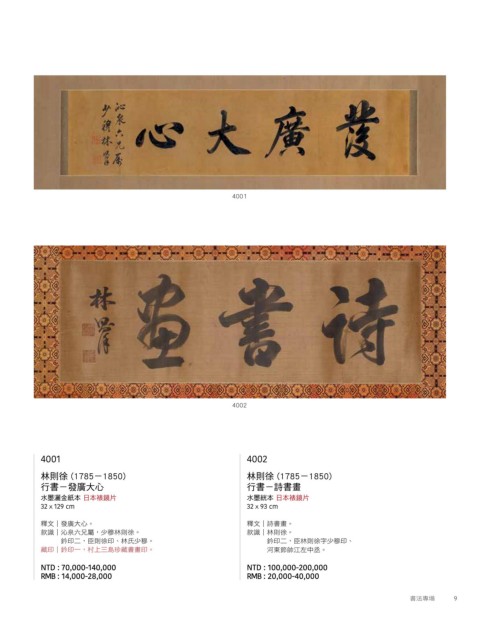 發廣大心
沁泉六兄屬
少穆林則徐
4001
詩書畫
林則徐
4002
4001
林則徐 (1785－1850)
行書－發廣大心
水墨灑金紙本 日本裱鏡片
32 x 129 cm
釋文｜發廣大心。
款識｜沁泉六兄屬，少穆林則徐。
鈐印二，臣則徐印、林氏少穆。
藏印｜鈐印一，村上三島珍藏書畫印。
NTD : 70,000-140,000
RMB : 14,000-28,000
4002
林則徐 (1785－1850)
行書－詩書畫
水墨絖本 日本裱鏡片
32 x 93 cm
釋文｜詩書畫。
款識｜林則徐。
鈐印二，臣林則徐字少穆印、
河東節帥江左中丞。
NTD : 100,000-200,000
RMB : 20,000-40,000
書法專場 9